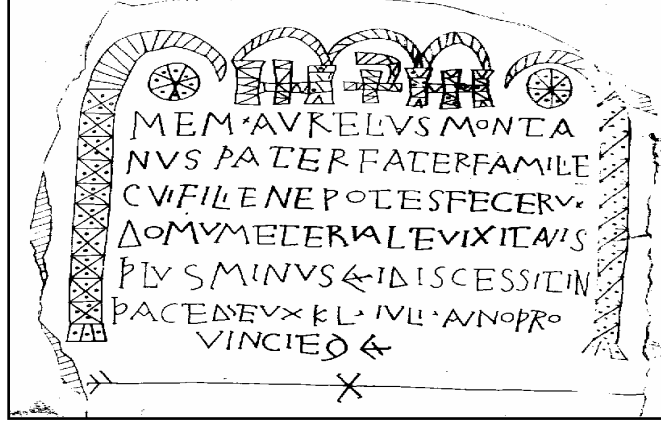 MEM·AVRELIVS MONTA
NVS PATER FATERFAMILIE
CVIFILIENEPOTESFECERV×
DOMVMETERNALEVIXITANIS
PLVSMINVS DISCESSITIN
PACE KL·IVLI·ANOPRO
VINCIE